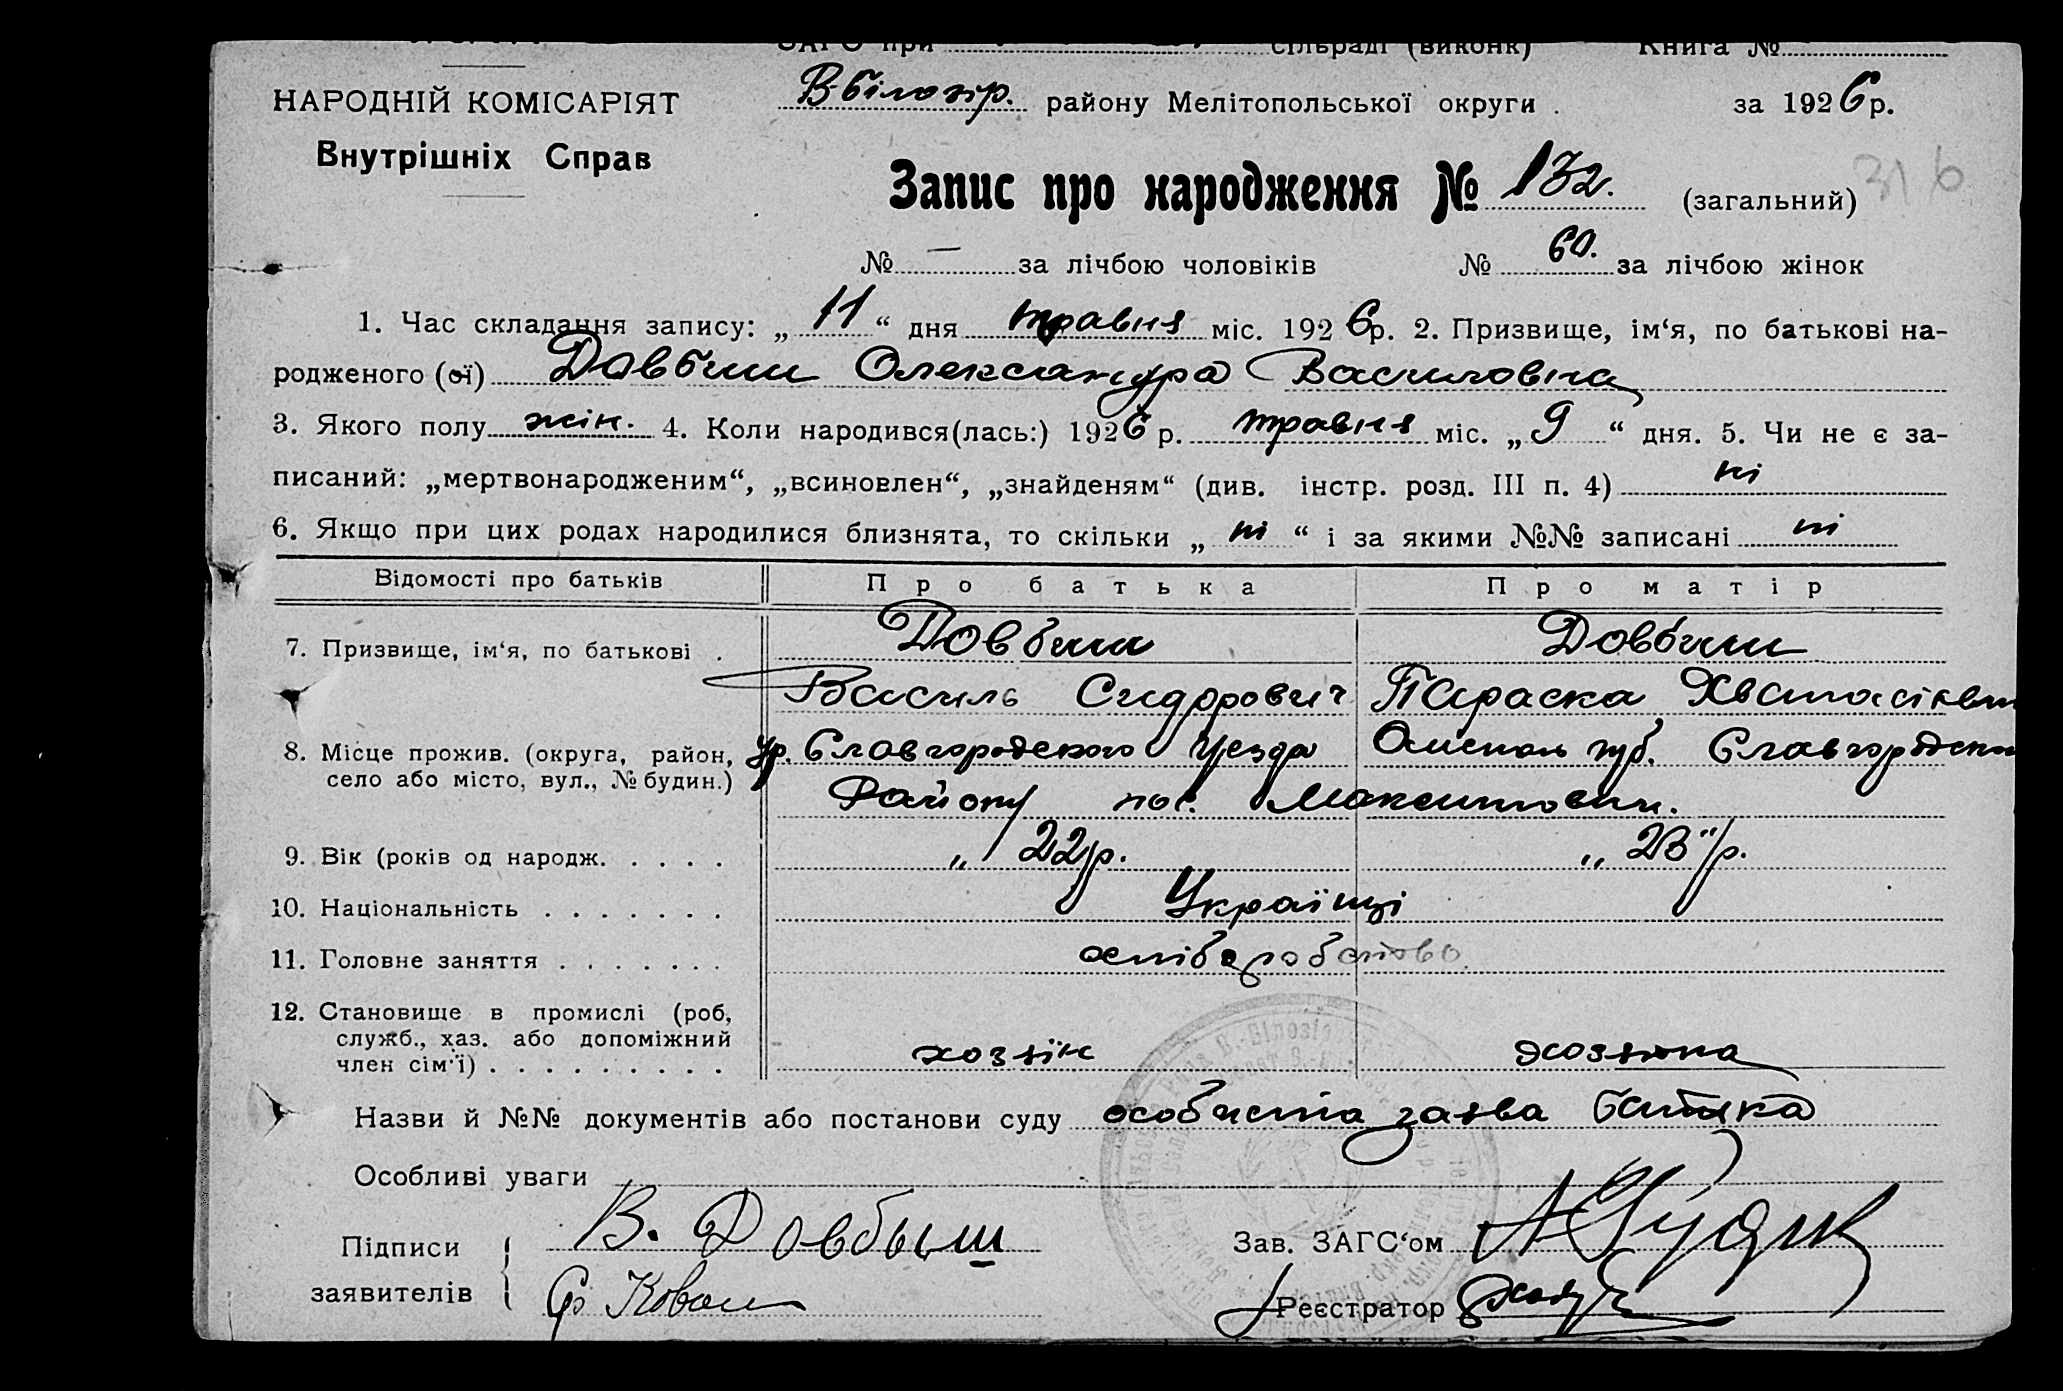 ЗАГС при сільраді (виконк) Книга №
НАРОДНІЙ КОМІСАРІЯТ
Внутрішніх Справ
В-Білозір. району Мелітопольської округи . за 1926 р.
Запис про народження № 132. (загальний) 316
№ — за лічбою чоловіків № 60. за лічбою жінок
1. Час складання запису: „ 11 “ дня травня міс. 1926 р. 2. Призвище, ім‘я, по батькові на-
родженого (ої) Довбиш Олександра Василовна
3. Якого полу жін. 4. Коли народився(лась:) 1926 р. травня міс. „ 9 “ дня. 5. Чи не є за-
писаний: „мертвонародженим“, „всиновлен“, „знайденям“ (див. інстр. розд. III п. 4) ні
6. Якщо при цих родах народилися близнята, то скільки „ ні “ і за якими №№ записані ні
Відомості про батьків Про батька Про матір
7. Призвище, ім‘я, по батькові . Довбиш Довбиш
Василь Сидорович Параска
8. Місце прожив. (округа, район, село або місто, вул., № будин.) Славгородского Уезда губ. Славгородско
Району пос.
9. Вік (років од народж. . . . . „ 22 р. „ 23 “ р.
10. Національність . . . . . . . Українці
11. Головне заняття . . . . . . . хліборобство
12. Становище в промислі (роб,
служб., хаз. або допоміжний
член сім'ї) . . . . . . . . . хозяїн хозяйка
Назви й №№ документів або постанови суду особиста заява батька
Особливі уваги
Підписи В. Довбыш Зав. ЗАГС‘ом
заявителів Реєстратор